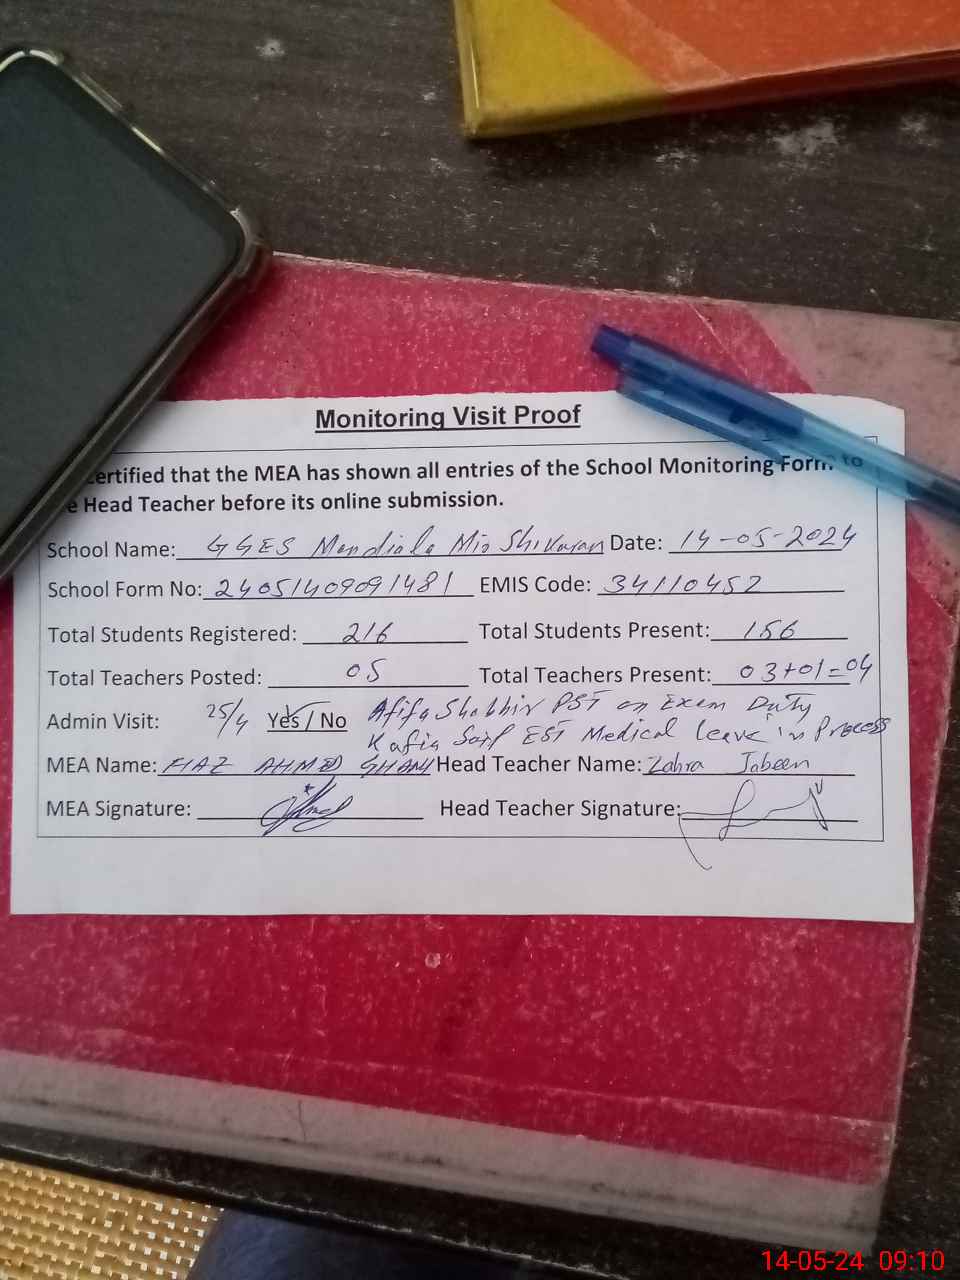 Monitoring Visit Proof
ertified that the MEA has shown all entries of the School Monitoring Form to
e Head Teacher before its online submission.
School Name: GGES Mandiala Mir Shikaran Date: 14-05-2024
School Form No: 24051409091481 EMIS Code: 34110452
Total Students Registered: 216 Total Students Present: 156
Total Teachers Posted: 05 Total Teachers Present: 03+01=04
Admin Visit: 25/4 Yes / No Afifa Shabbir PST on Exam Duty
Kafia Saif EST Medical leave in Process
MEA Name: AHMED Head Teacher Name: Zahra Jabeen
MEA Signature: Head Teacher Signature:
14-05-24 09:10